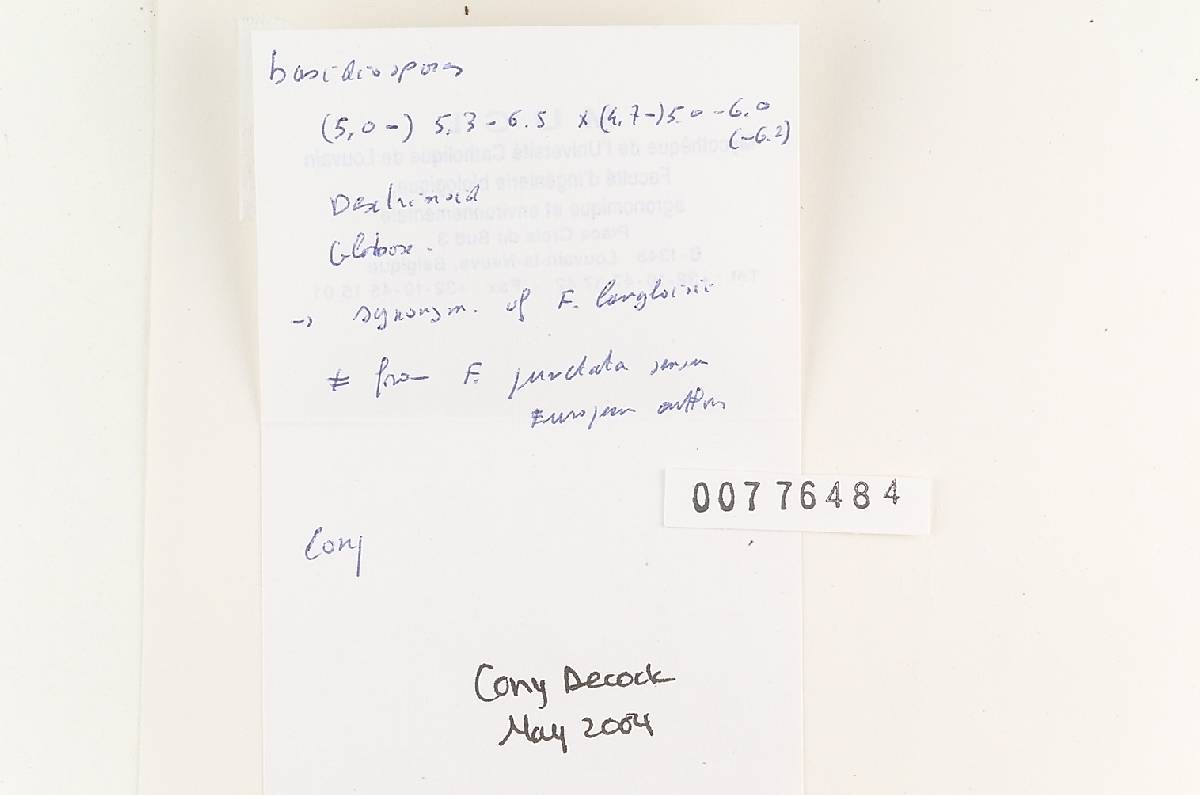 basidiospores
(5,0-) 5,3-6.5 x (4,7-)5.0-6.0
(-6.2)
Dextrinoid
Globose.
→ synonym. of F. langloisii
≠ from F. punctata sensu
European authors
Cony
00776484
Cony Decock
May 2004